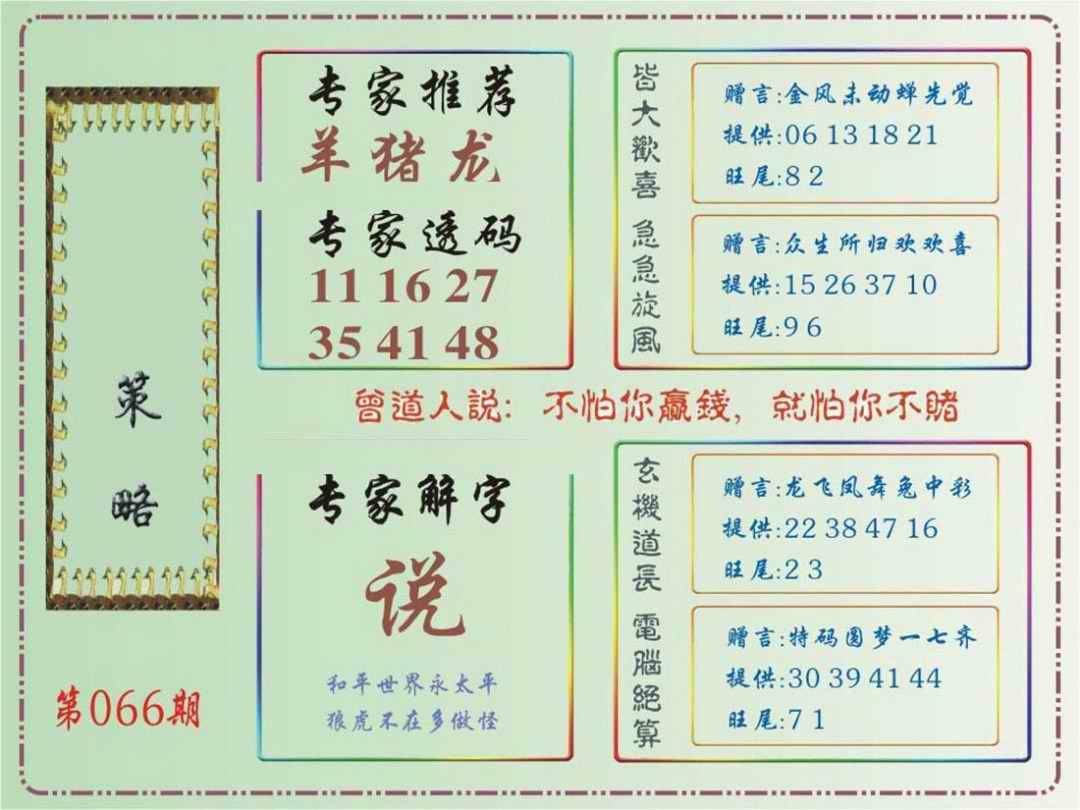 策略
第066期
专家推荐
羊猪龙
专家透码
11 16 27
35 41 48
皆大歡喜
赠言:金风未动蝉先觉
提供:06 13 18 21
旺尾:8 2
急急旋風
赠言:众生所归欢欢喜
提供:15 26 37 10
旺尾:9 6
曾道人説: 不怕你贏錢, 就怕你不賭
专家解字
说
和平世界永太平
狼虎不在多做怪
玄機道長
赠言:龙飞凤舞兔中彩
提供:22 38 47 16
旺尾:2 3
電腦絕算
赠言:特码圆梦一七齐
提供:30 39 41 44
旺尾:7 1